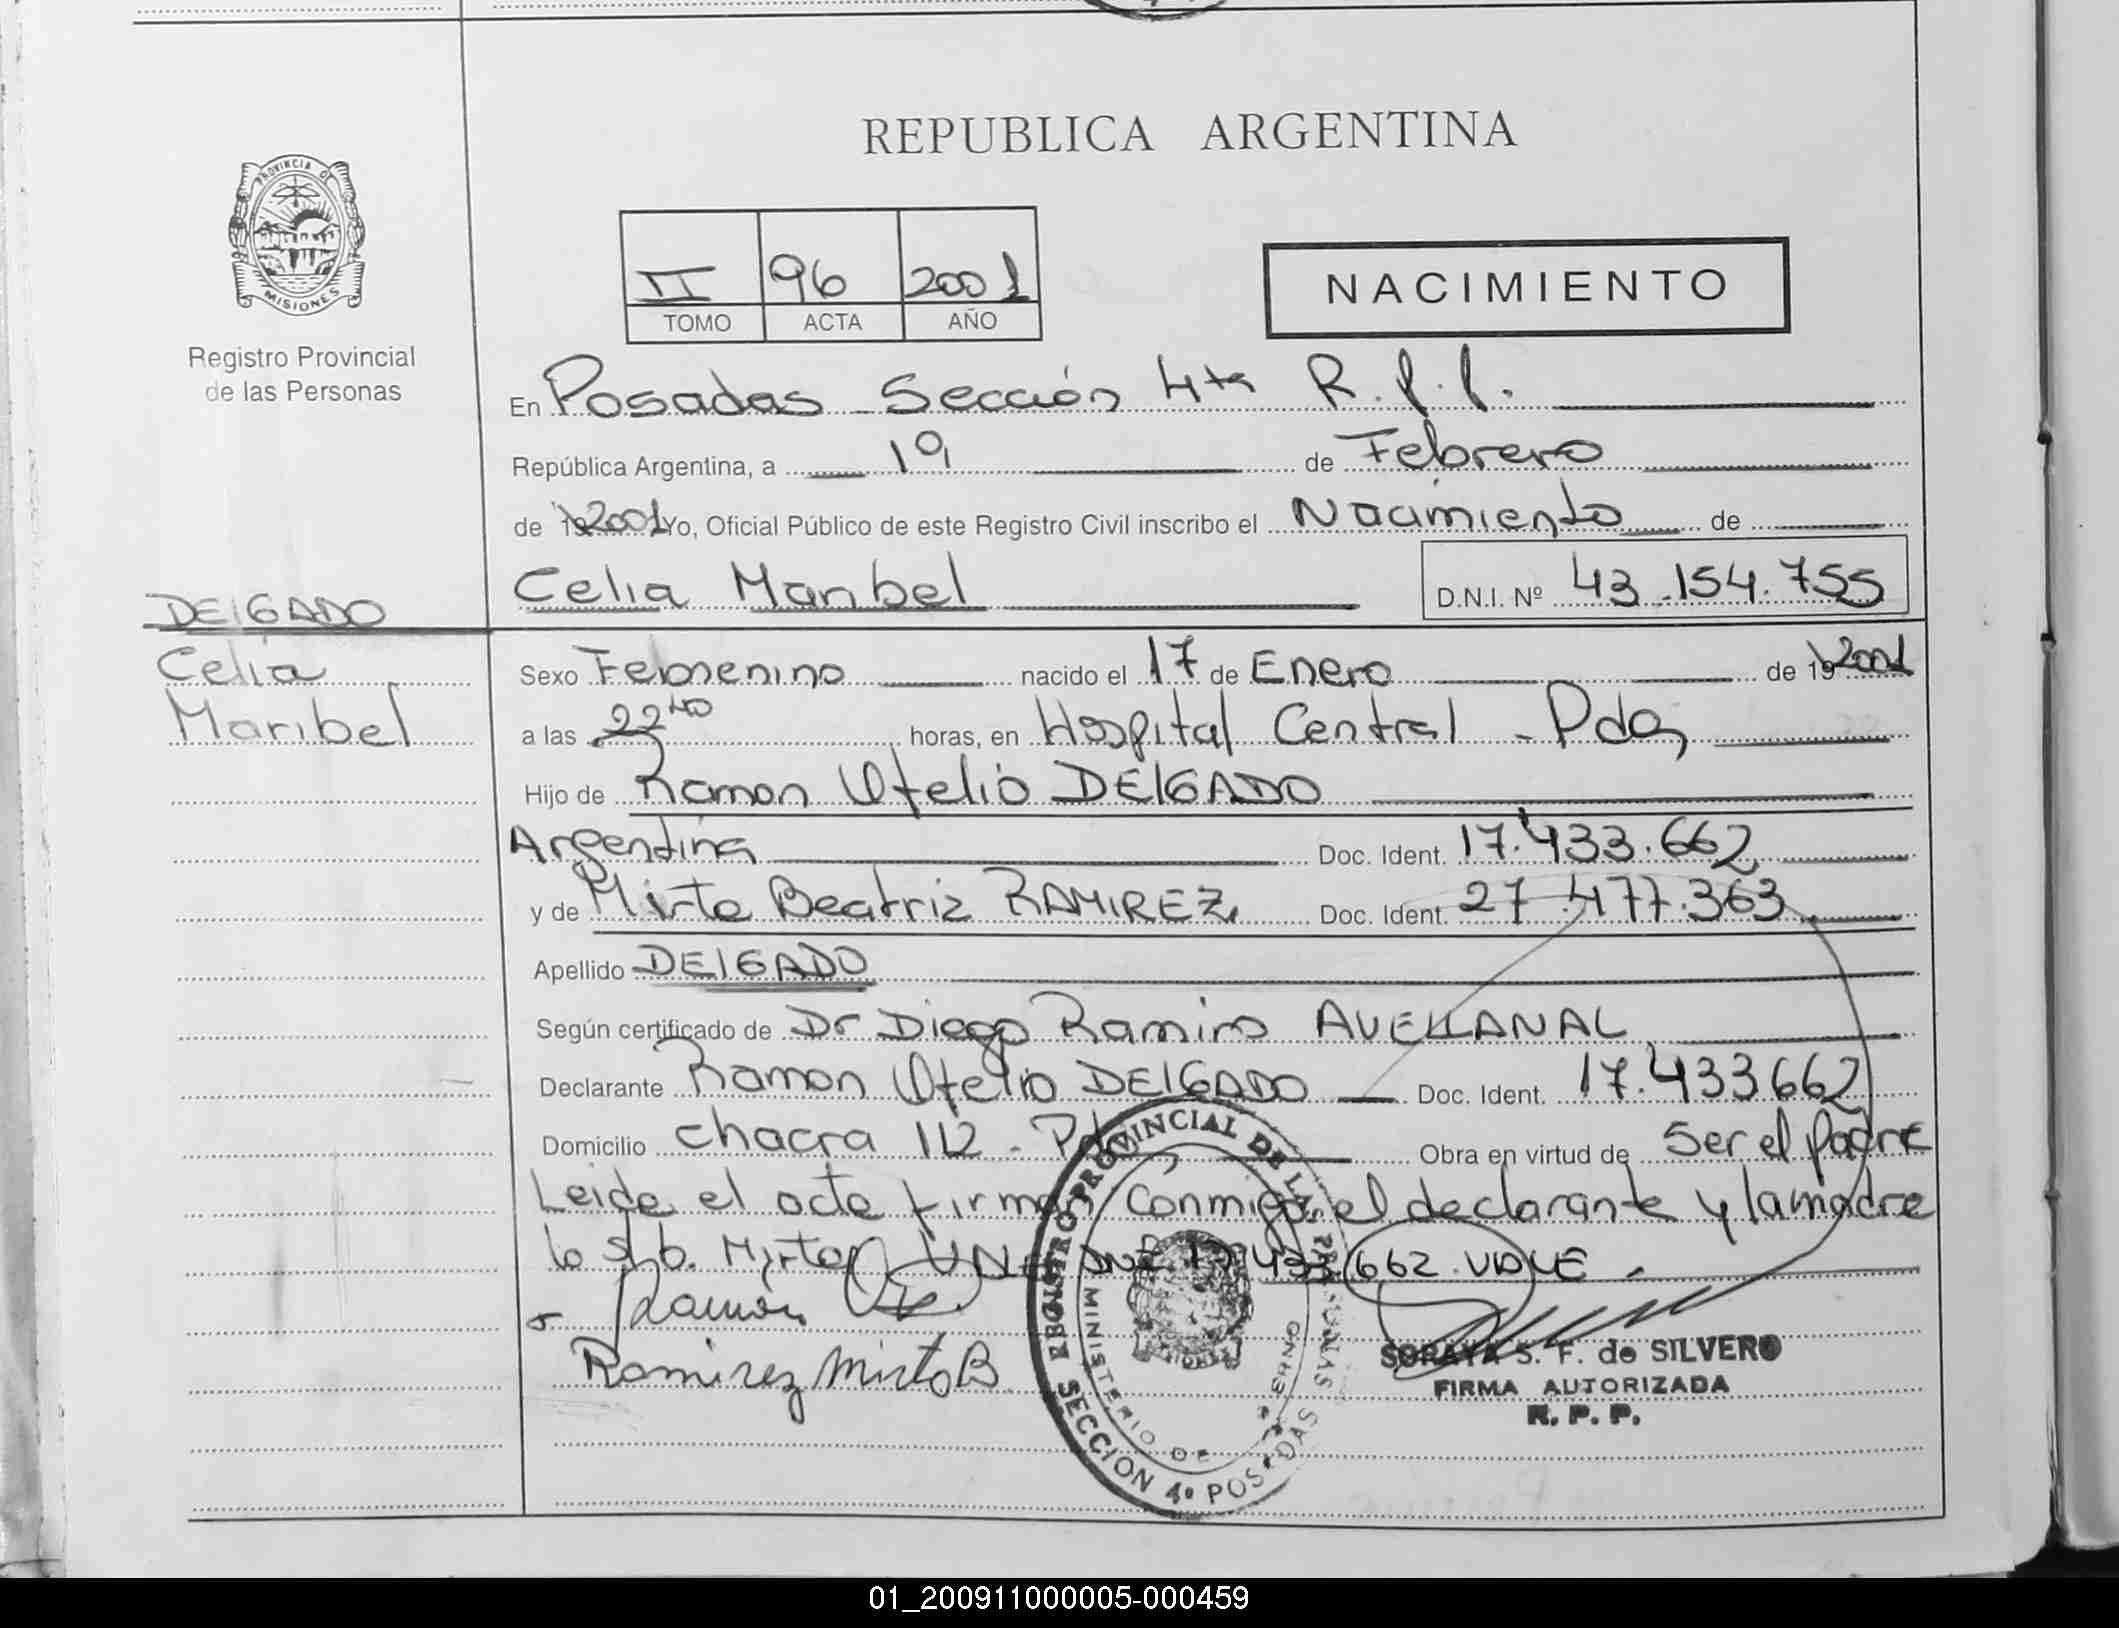 REPUBLICA ARGENTINA
PROVINCIA DE
MISIONES
Registro Provincial
de las Personas
II 96 2001
TOMO ACTA AÑO
NACIMIENTO
En Posadas Sección 4ta R.P.P.
República Argentina, a 1º de Febrero
de 19 2001 Yo, Oficial Público de este Registro Civil inscribo el Nacimiento de
Celia Maribel D.N.I. Nº 43.154.755
DELGADO
Celia
Maribel
Sexo Femenino nacido el 17 de Enero de 19 2001
a las 22 40 horas, en Hospital Central - Pdas
Hijo de Ramon Ofelio DELGADO
Argentina Doc. Ident. 17.433.662
y de Mirta Beatriz RAMIREZ Doc. Ident. 27.477.363
Apellido DELGADO
Según certificado de Dr Diego Ramiro AVELLANAL
Declarante Ramon Ofelio DELGADO Doc. Ident. 17.433662
Domicilio chacra 112 - Pdas Obra en virtud de Ser el padre
Leida el acta firman conmigo el declarante y la madre
lo s/b. Mirta DNI 17.433.662 VALE.
Ramón
Ramirez Mirta B
REGISTRO PROVINCIAL DE LAS PERSONAS
MINISTERIO DE
SECCION 4º POSADAS
SORAYA S. F. de SILVERO
FIRMA AUTORIZADA
R. P. P.
01_200911000005-000459